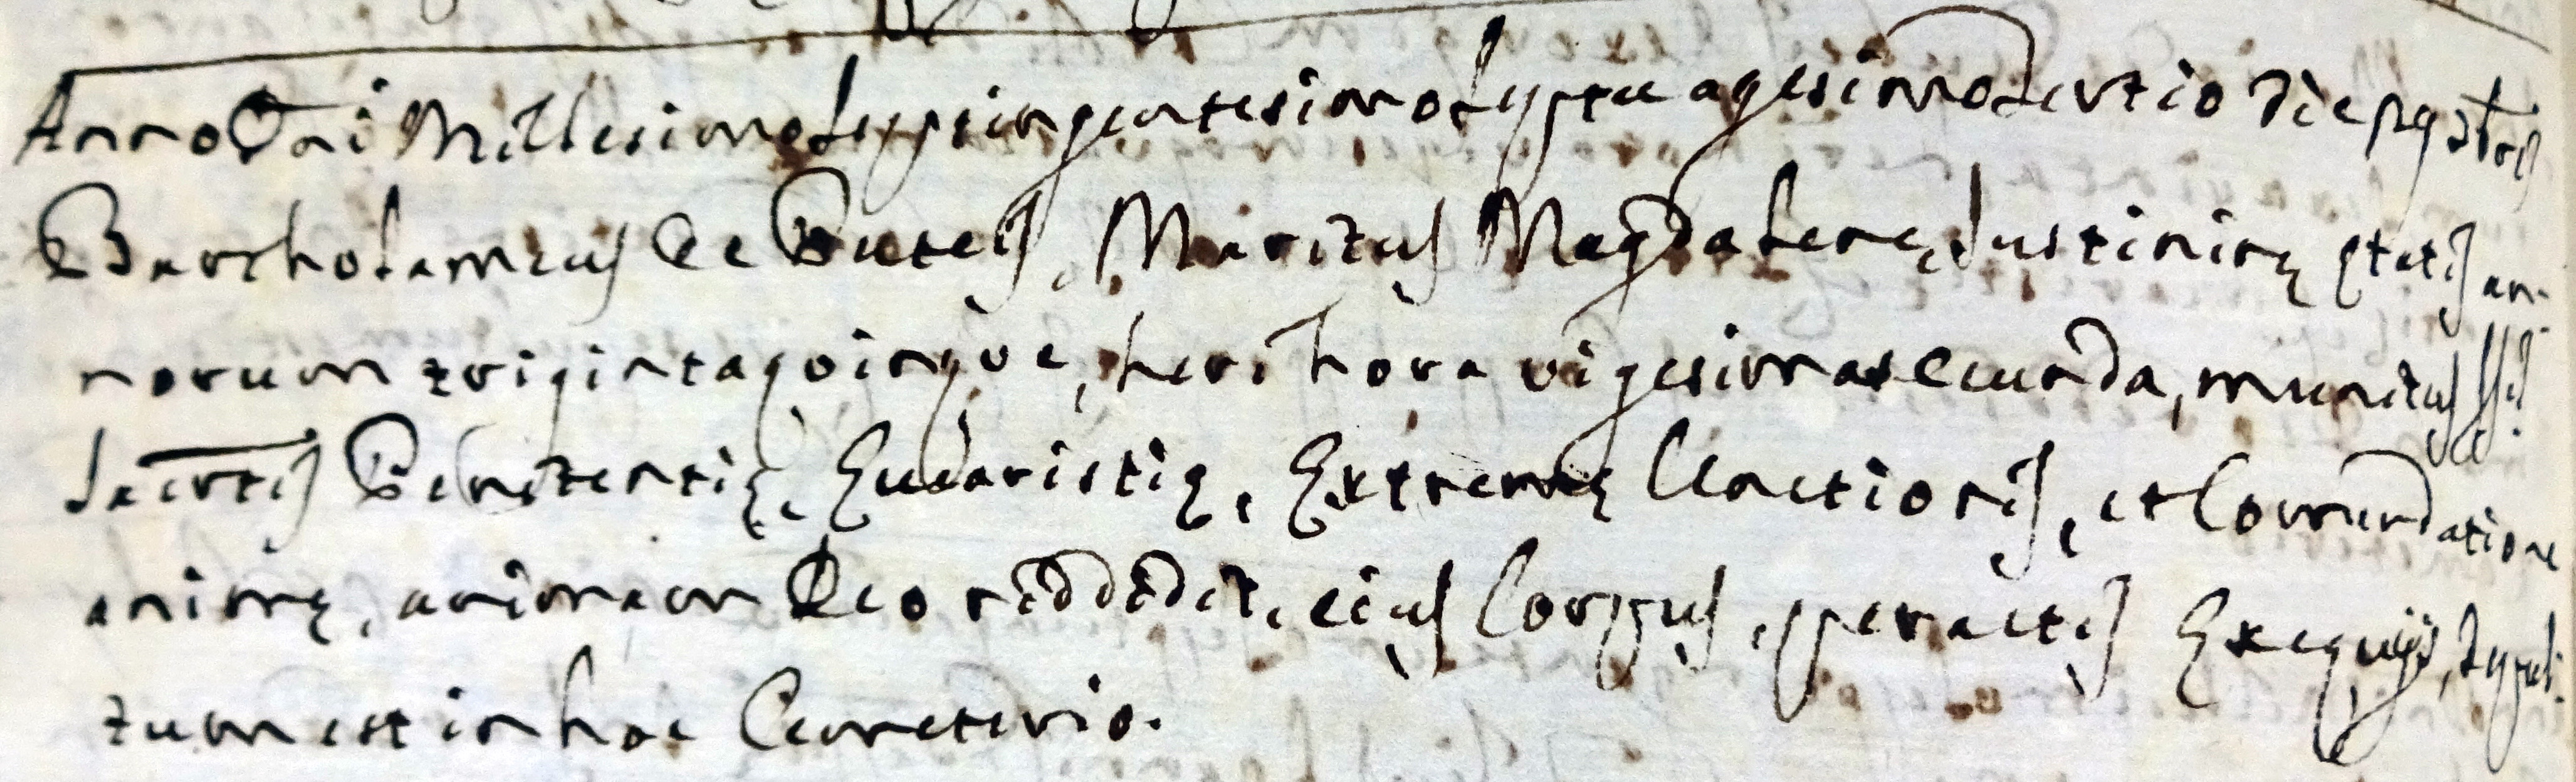 Anno Dni Millesimo septingentesimo septuagesimo tertio die
Bartholameus de Buteis, Maritus Magdalenę Iustininę ętatis an-
norum triginta quinque, heri hora vigesima secunda, munitus SSis
Sacrtis Penitentię, Eucaristię, Extremę Unctionis, et Comendatione
animę, animam Deo reddidit, eius Corpus, peractis Exequijs, sepul-
tum est in hoc Cemeterio.